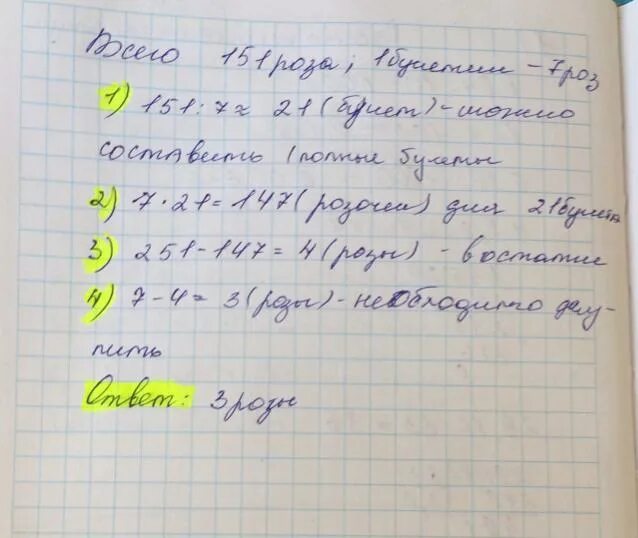 Всего 151 роза; 1 букетик - 7 роз
1) 151:7≈ 21 (букет) - можно
составить (полные букеты
2) 7·21=147 (розочки) для 21 букета
3) 251-147=4 (розы) - в остатке
4) 7-4= 3 (розы) - необходимо доку-
пить
Ответ: 3 розы